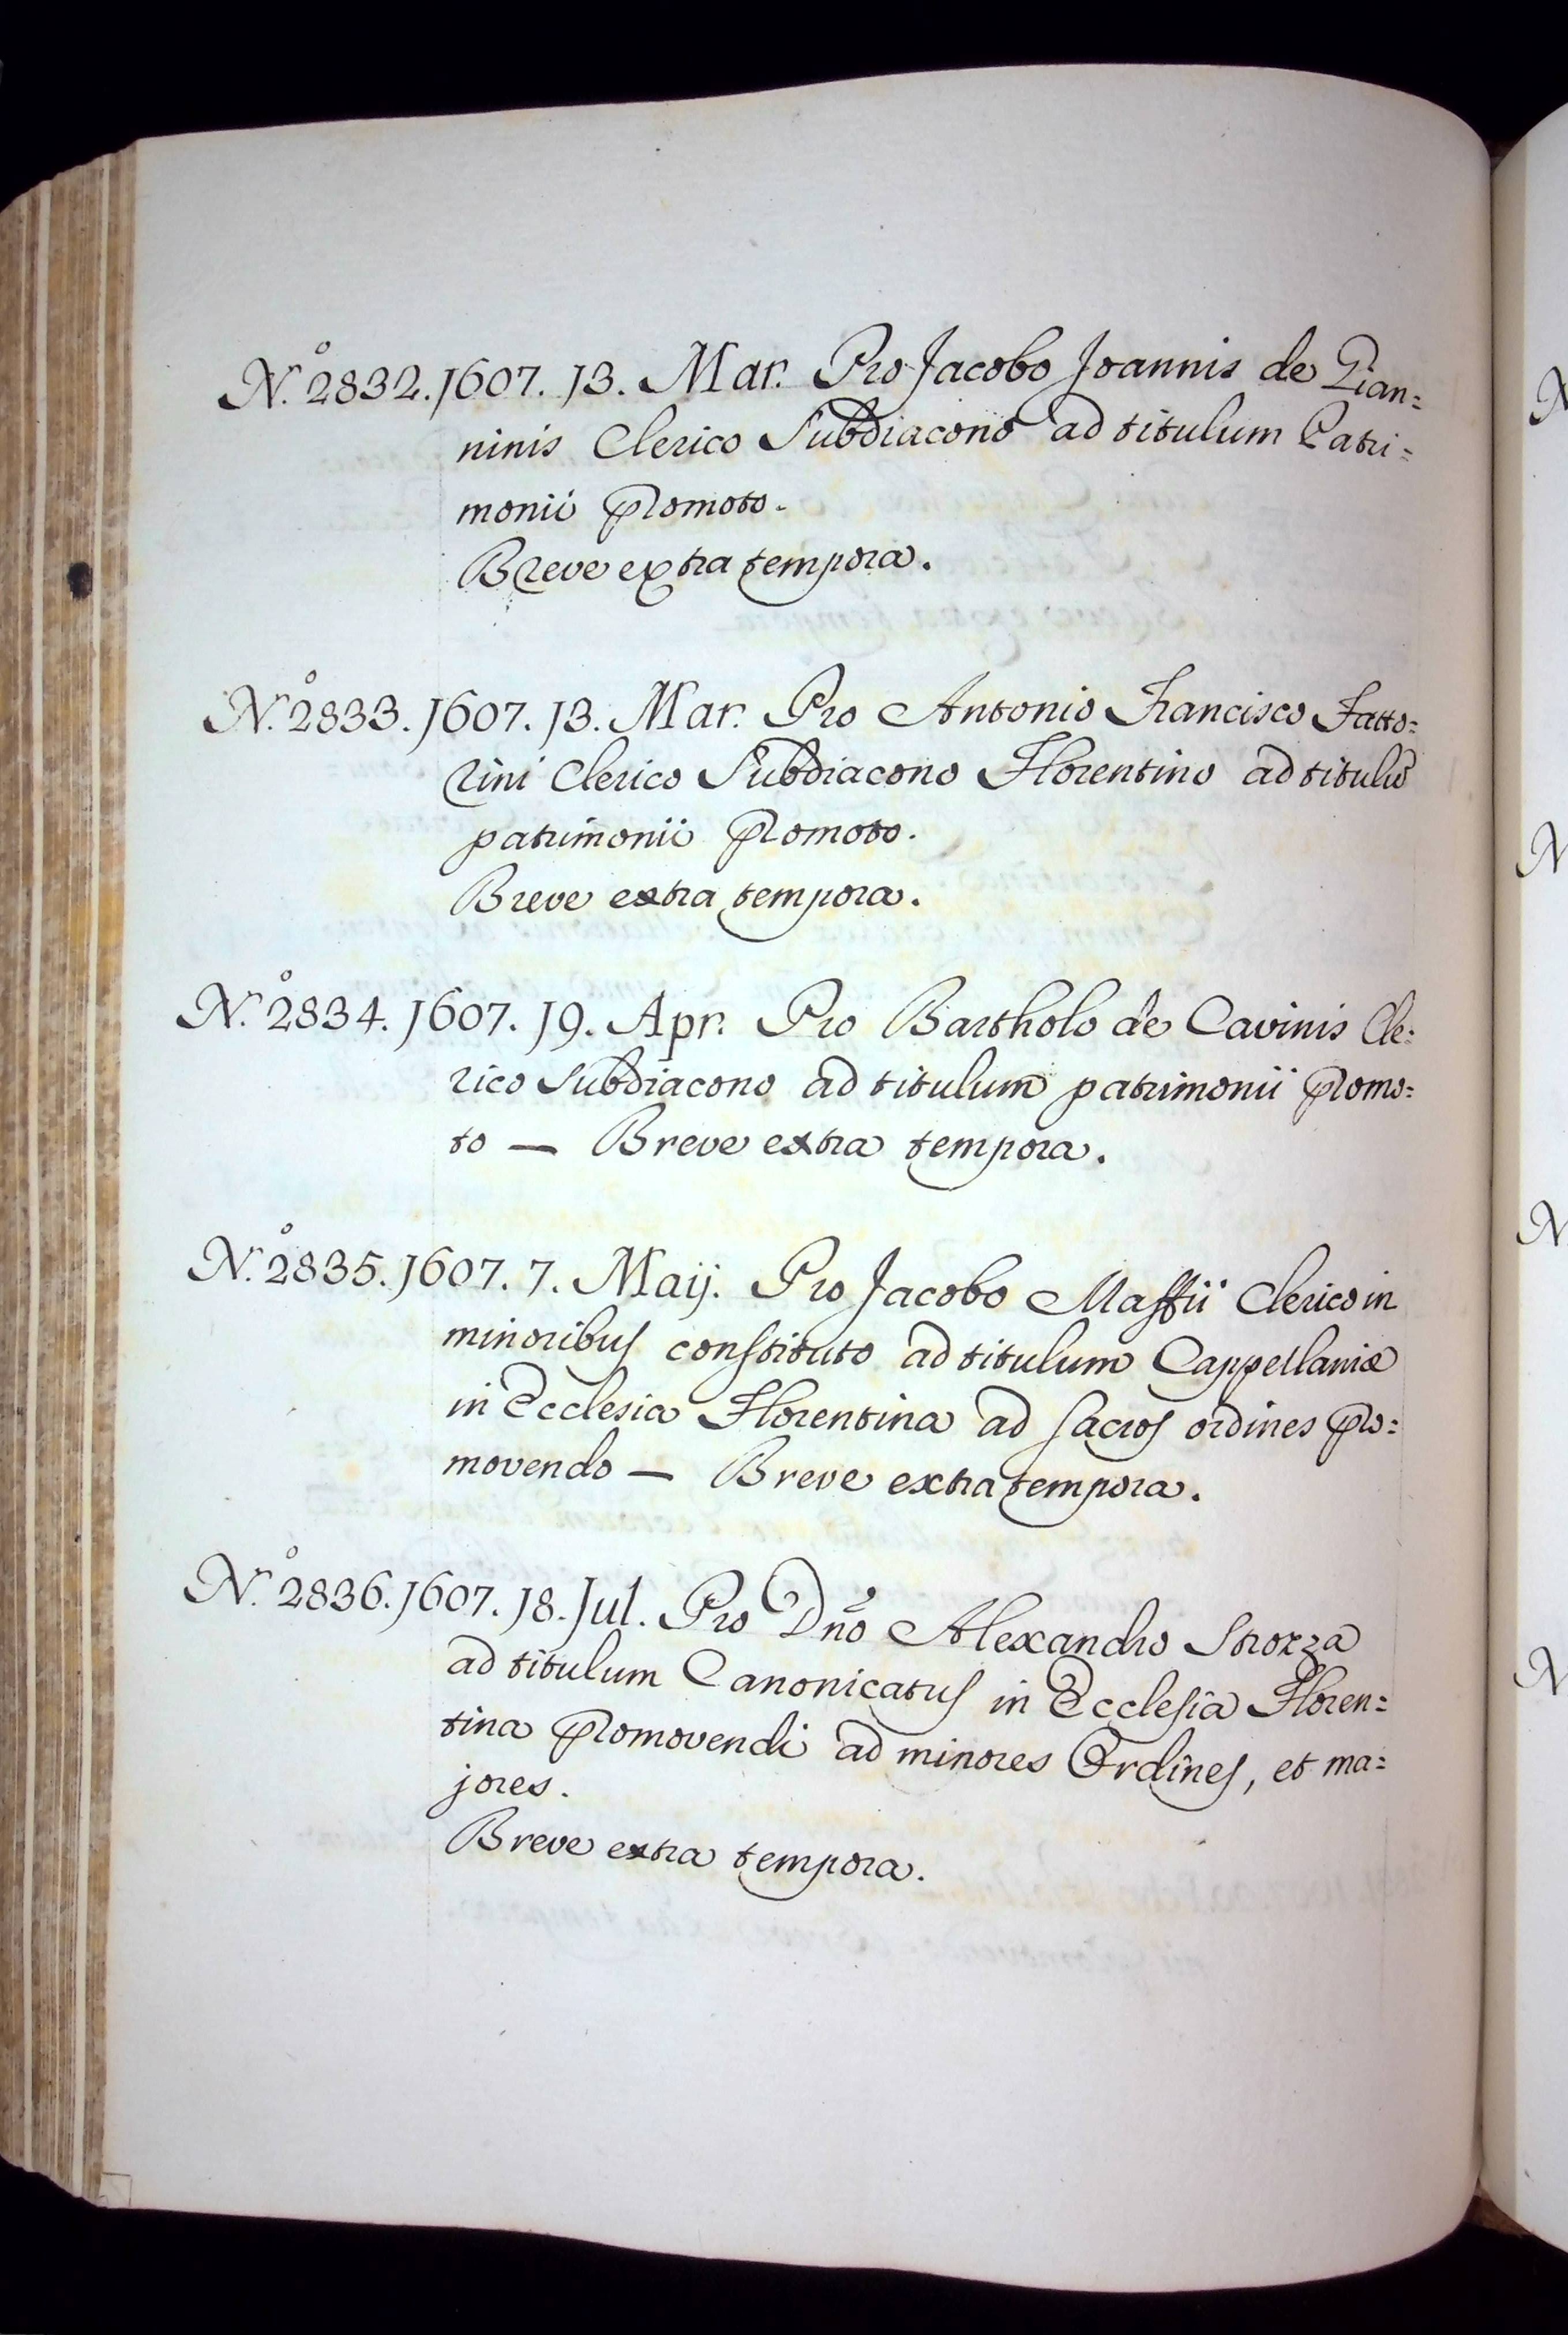 N.º 2832. 1607. 13. Mar. Pro Jacobo Joannis de Pian=
ninis Clerico Subdiacono ad titulum Patri=
monii promoto.
Breve extra tempora.
N.º 2833. 1607. 13. Mar. Pro Antonio Francisco Fatto=
rini Clerico Subdiacono Florentino ad titulũ
patrimonii promoto.
Breve extra tempora.
N.º 2834. 1607. 19. Apr. Pro Bartholo de Cavinis Cle=
rico Subdiacono ad titulum patrimonii promo=
to — Breve extra tempora.
N.º 2835. 1607. 7. Maij. Pro Jacobo Maffii Clerico in
minoribus constituto ad titulum Cappellaniæ
in Ecclesia Florentina ad sacros ordines pro=
movendo — Breve extra tempora.
N.º 2836. 1607. 18. Jul. Pro Dño Alexandro Strozza
ad titulum Canonicatus in Ecclesia Floren=
tina promovendi ad minores Ordines, et ma=
jores.
Breve extra tempora.